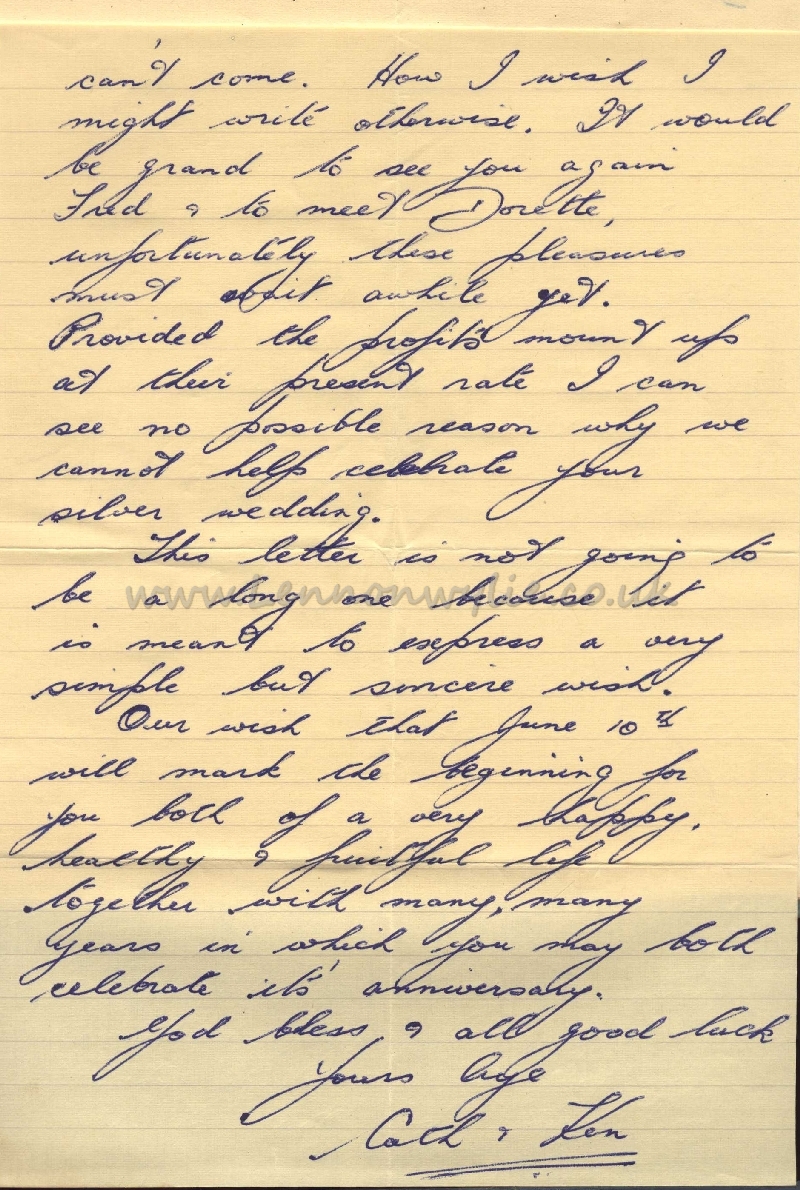 can't come. How I wish I
might write otherwise. It would
be grand to see you again
Fred & to meet Dorette,
unfortunately these pleasures
must wait awhile yet.
Provided the profits mount up
at their present rate I can
see no possible reason why we
cannot help celebrate your
silver wedding.
This letter is not going to
be a long one because it
www.lennonwylie.co.uk
is meant to express a very
simple but sincere wish.
Our wish that June 10th
will mark the beginning for
you both of a very happy,
healthy & fruitful life
together with many, many
years in which you may both
celebrate it's anniversary.
God bless & all good luck
Yours Aye
Cath & Ken